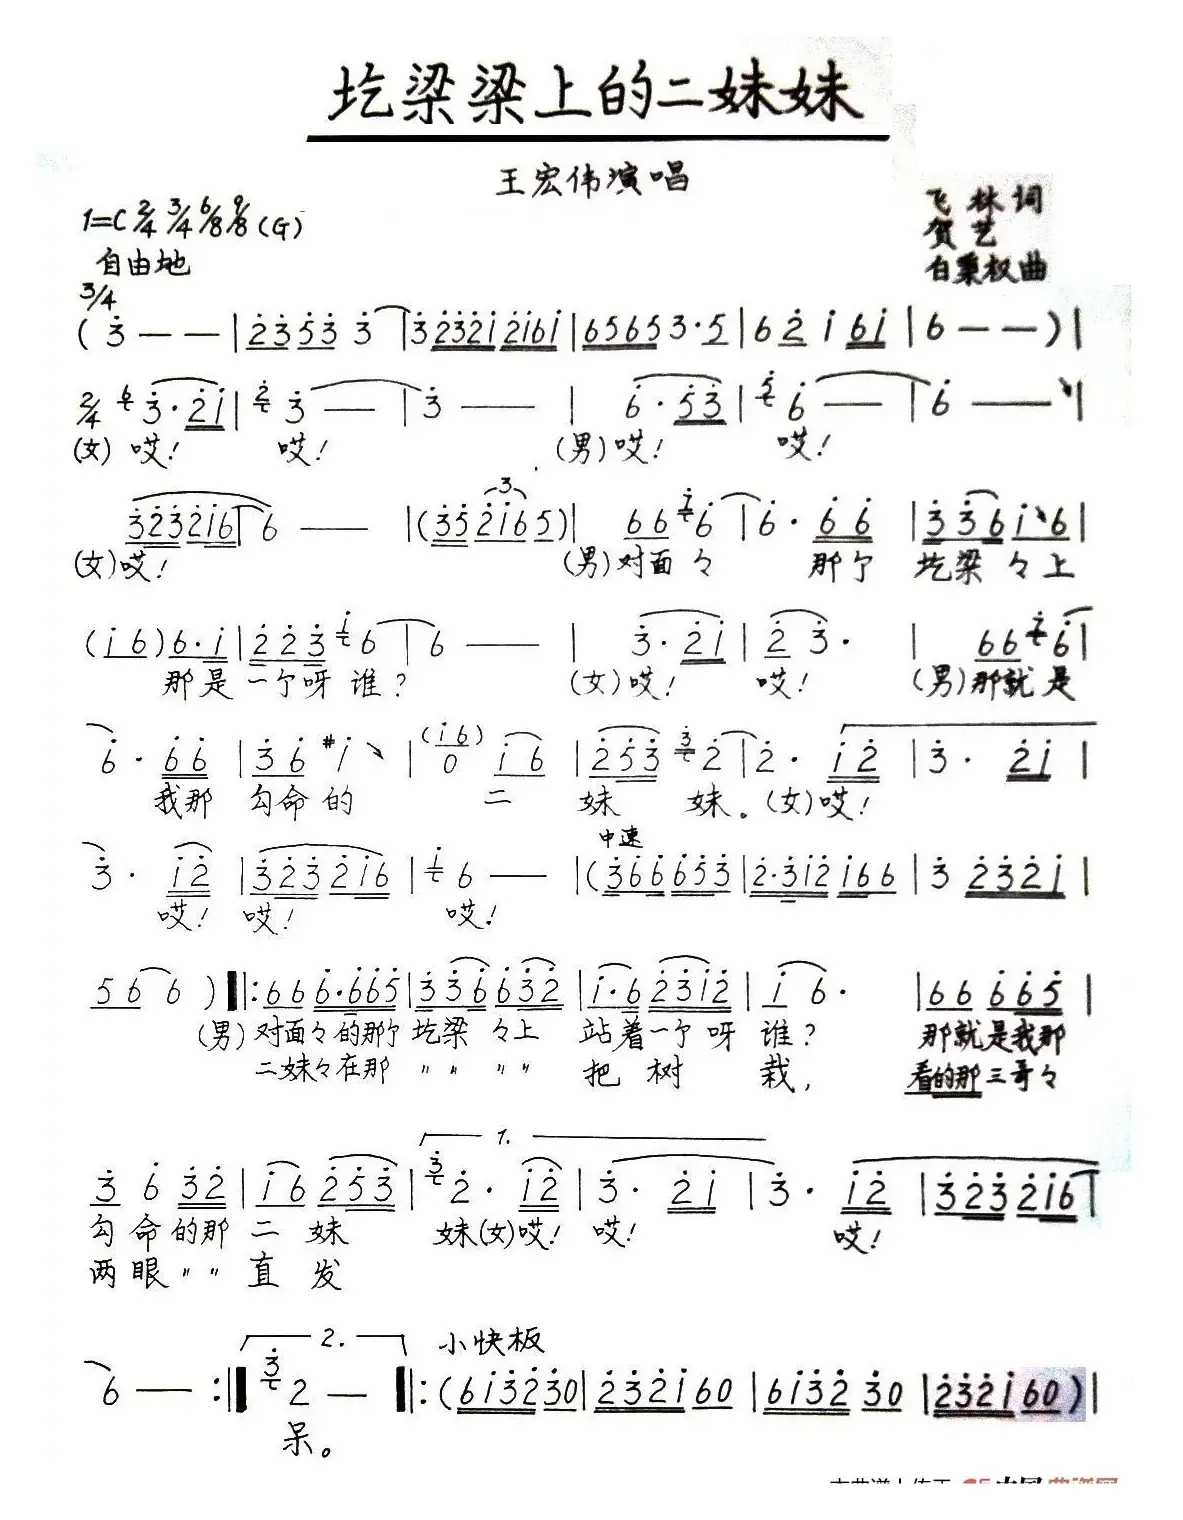 圪梁梁上的二妹妹
王宏伟演唱
1=C 2/4 3/4 6/8 9/8 (G)
飞林词
贺艺
白秉权曲
自由地
3/4
( 3 — — | 2 3 5 3 3 | 3 2 3 2 i 2 i 6 i | 6 5 6 5 3 · 5 | 6 2 i 6 i | 6 — — ) |
2/4 6 3 · 2 i | 2 3 — | 3 — | 6 · 5 3 | 5 6 — | 6 — |
(女) 哎! 哎! (男) 哎! 哎!
3 2 3 2 i 6 | 6 — | ( 3 5 2 i 6 5 ) | 6 6 2 6 | 6 · 6 6 | 3 3 6 i 6 |
(女) 哎! (男) 对面々 那个 圪梁々上
( i 6 ) 6 · i | 2 2 3 i 6 | 6 — | 3 · 2 i | 2 3 · | 6 6 2 6 |
那是一个呀谁? (女) 哎! 哎! (男) 那就是
6 · 6 6 | 3 6 #i | (i 6) 0 i 6 | 2 5 3 3 2 | 2 · i 2 | 3 · 2 i |
我那 勾命的 二 妹 妹。(女) 哎!
中速
3 · i 2 | 3 2 3 2 i 6 | i 6 — | ( 3 6 6 6 5 3 | 2 · 3 i 2 i 6 6 | 3 2 3 2 i |
哎! 哎! 哎!
5 6 6 ) |: 6 6 6 · 6 6 5 | 3 3 6 6 3 2 | i · 6 2 3 i 2 | i 6 · | 6 6 6 6 5 |
(男) 对面々的那个 圪梁 々上 站着一个呀谁? 那就是我那
二妹々在那 〃 〃 〃 〃 把树栽, 看的那三哥々
1.
3 6 3 2 | i 6 2 5 3 | 3 2 · i 2 | 3 · 2 i | 3 · i 2 | 3 2 3 2 i 6 |
勾命的那 二 妹 妹(女)哎! 哎! 哎!
两眼〃〃 直 发
2. 小快板
6 — :| 3 2 — |: ( 6 i 3 2 3 0 | 2 3 2 i 6 0 | 6 i 3 2 3 0 | 2 3 2 i 6 0 ) |
呆。